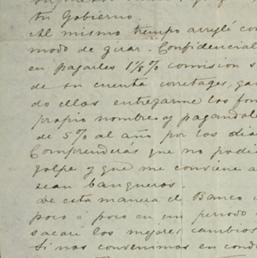 su Gobierno.
Al mismo tiempo arreglé con
modo de girar. Confidencial
en pagarles 1½% comision s
de su cuenta corretages, ga
do ellos entregarme los fon
propio nombre y pagandole
de 5% al año por los dias
Comprenderás que no podi
golpe y que me conviene a
sean banqueros.
De esta manera el Banco i
poco á poco en un periodo
sacará los mejores cambios
Si nos convenimos en cond